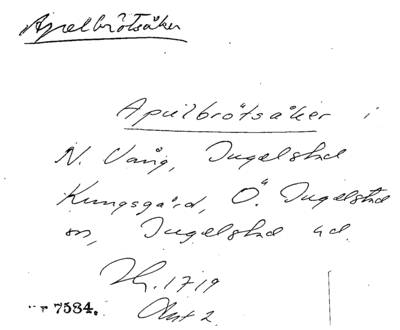 Apelbrötsåker
Apelbrötsåker i
N. Vång, Ingelstad
Kungsgård, Ö. Ingelstad
sn, Ingelstad hd.
1719
Akt 2
7584.